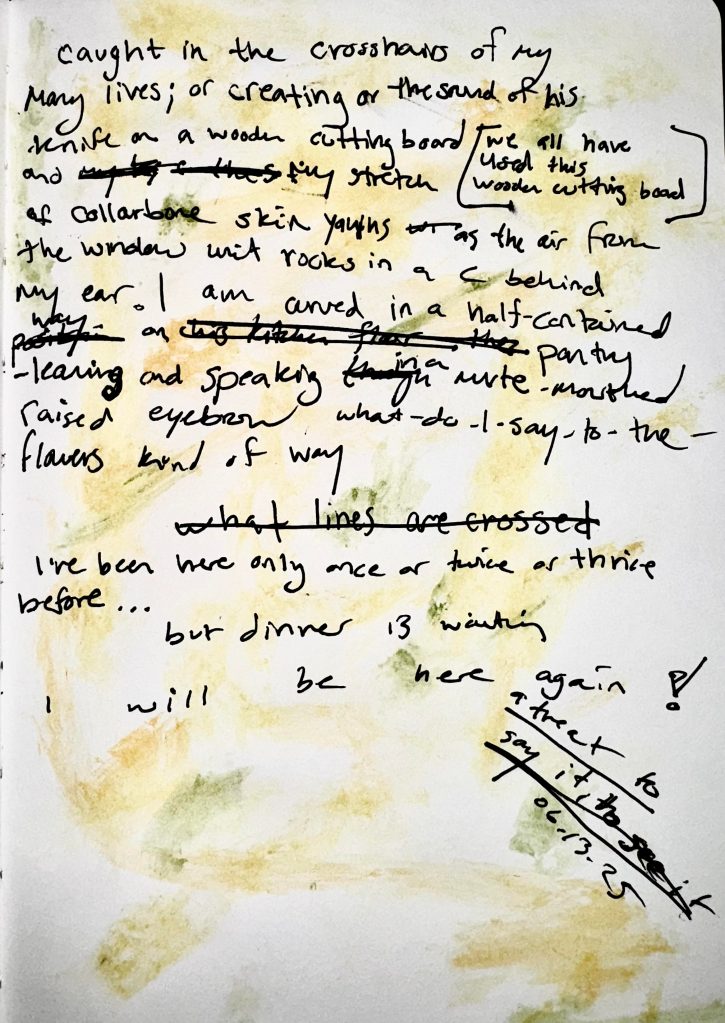 caught in the crosshairs of my
many lives; or creating or the sound of his
knife on a wooden cutting board
[we all have
used this
wooden cutting board]
and my stretch
of collarbone skin yawns as the air from
the window unit rocks in a C behind
my ear. I am curved in a half-contained
way on pantry
-leaning and speaking in a mute-mouthed
raised eyebrow what-do-I-say-to-the-
flowers kind of way
what lines are crossed
I've been here only once or twice or thrice
before...
but dinner is waiting
I will be here again !
a treat to
say it, to see it
06-13-25